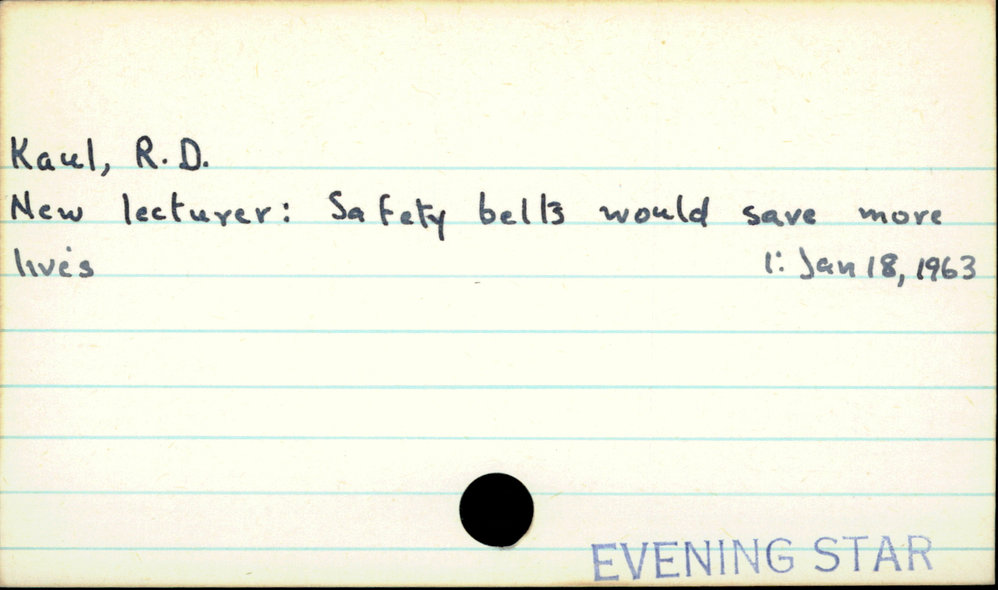 Kaul, R.D.
New lecturer: Safety belts would save more
lives 1: Jan 18, 1963
EVENING STAR